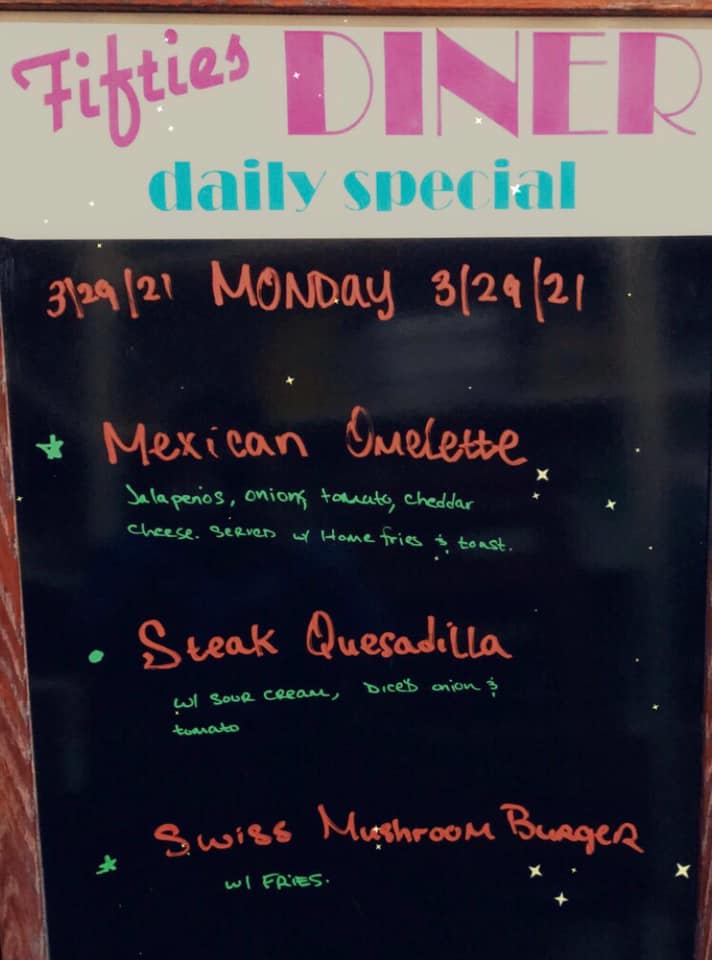 Fifties DINER
daily special
3/29/21 MONDAY 3/29/21
Mexican Omelette
Jalapeños, onion, tomato, cheddar
cheese. Served w/ Home fries & toast.
Steak Quesadilla
w/ sour cream, Diced onion &
tomato
Swiss Mushroom Burger
w/ FRIES.